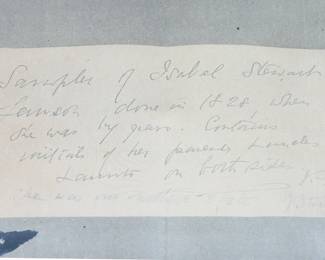 Sampler of Isabel Stewart
Lawson done in 1828, when
she was by years. Contains
initials of her parents uncles
& aunts on both sides